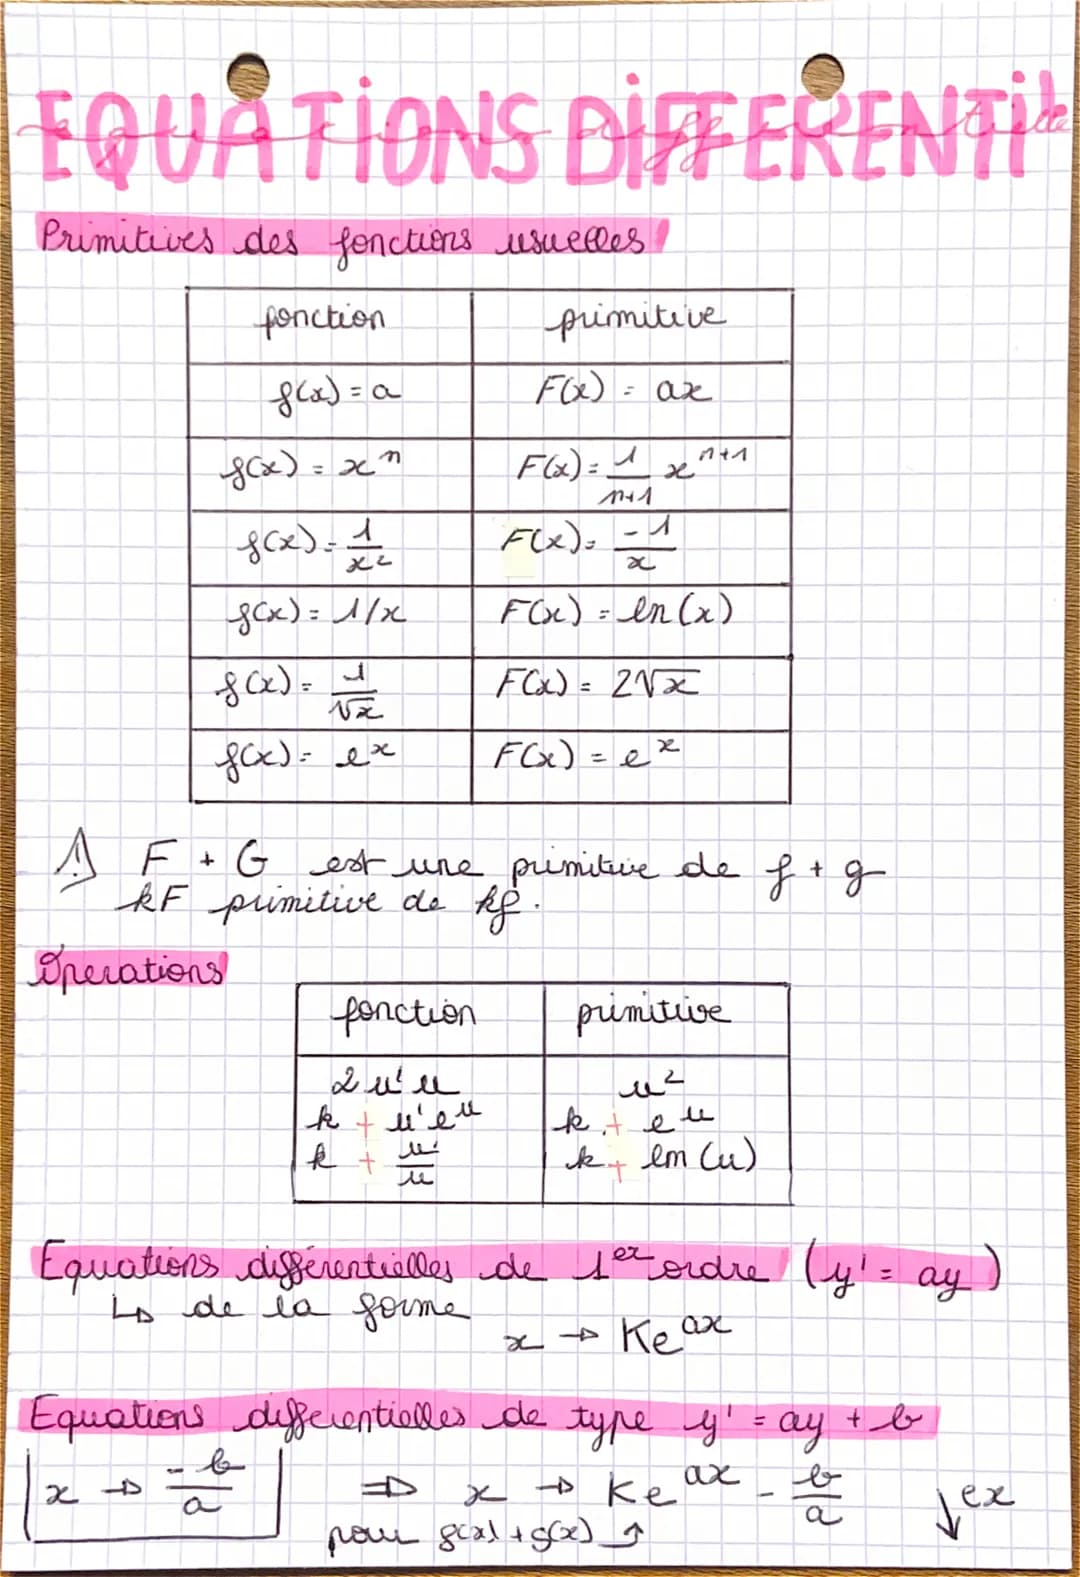 EQUATIONS DIFFERENTI
equations differentielle
Primitives des fonctions usuelles
fonction primitive
f(x) = a F(x) = ax
f(x) = xⁿ F(x) = 1/(n+1) xⁿ⁺¹
f(x) = 1/x² F(x) = -1/x
f(x) = 1/x F(x) = ln(x)
f(x) = 1/√x F(x) = 2√x
f(x) = eˣ F(x) = eˣ
⚠ F + G est une primitive de f + g
kF primitive de kf.
Opérations
fonction primitive
2u'u u²
k + u'eᵘ k + eᵘ
k + u'/u k + ln(u)
Equations différentielles de 1er ordre (y' = ay)
↳ de la forme
x → Ke^ax
Equations differentielles de type y' = ay + b
x → -b/a ⇒ x → Ke^ax - b/a ↓ ex
pour f(x) + g(x) ↑